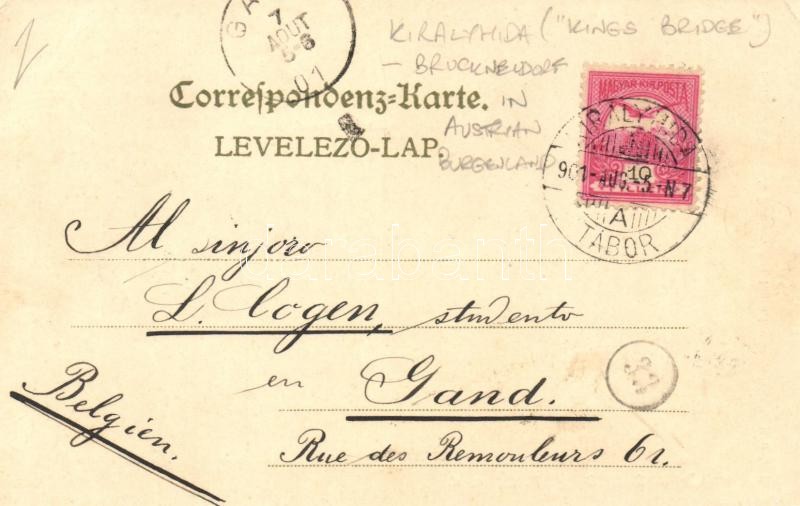 GA
7
AOUT
5-6
01
KIRALYHIDA ("KINGS BRIDGE")
— BRUCKNEUDORF
IN
AUSTRIAN
BURGENLAND
Correspondenz=Karte.
LEVELEZŐ-LAP.
MAGYAR KIR. POSTA
10
KIRALYHIDA
901-AUG.-5-N7
A
TÁBOR
Al sinjoro
L. Cogen, studento
en Gand.
Belgien.
Rue des Remouleurs 61.